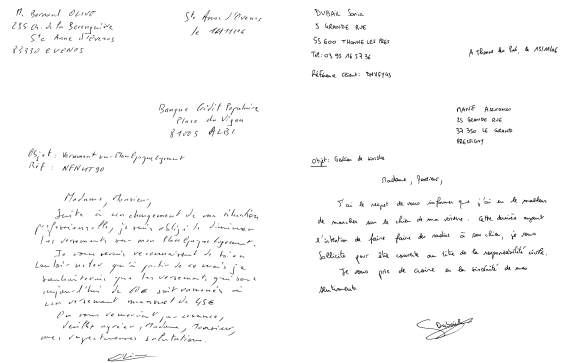 M. Bernard OLIVE
235 Ch. de la Berenguière
Ste Anne d'Evenos
83330 EVENOS
Ste Anne d'Evenos
le
Banque Crédit Populaire
Place du Vigan
81005 ALBI
Objet : Versement sur Plan Epargne Logement
Réf : NFNWT90
Madame, Monsieur,
Suite à un changement de ma situation
professionnelle, je suis obligé de diminuer
les versements sur mon Plan Epargne Logement.
Je vous serais reconnaissant de bien
vouloir noter qu'à partir de ce mois je
souhaiterais que les versements qui sont
aujourd'hui de soit ramenés à
un versement mensuel de 45€
En vous remerciant par avance,
veuillez agréer, Madame, Monsieur,
mes respectueuses salutations.
DUBAIL Sonia
5 GRANDE RUE
55600 THONNE LES PRES
Tel: 03 95 16 37 36
Référence client:
A Thonne les Prés, le
MANIE Assurances
25 GRANDE RUE
37350 LE GRAND
PRESSIGNY
Objet: Gestion de sinistre
Madame, Monsieur,
J'ai le regret de vous informer que j'ai eu le malheur
de marcher sur le chien de ma voisine. Cette dernière ayant
l'intention de faire faire des radios à son chien, je vous
sollicite pour être couverte au titre de la responsabilité civile.
Je vous prie de croire en la sincérité de mes
sentiments